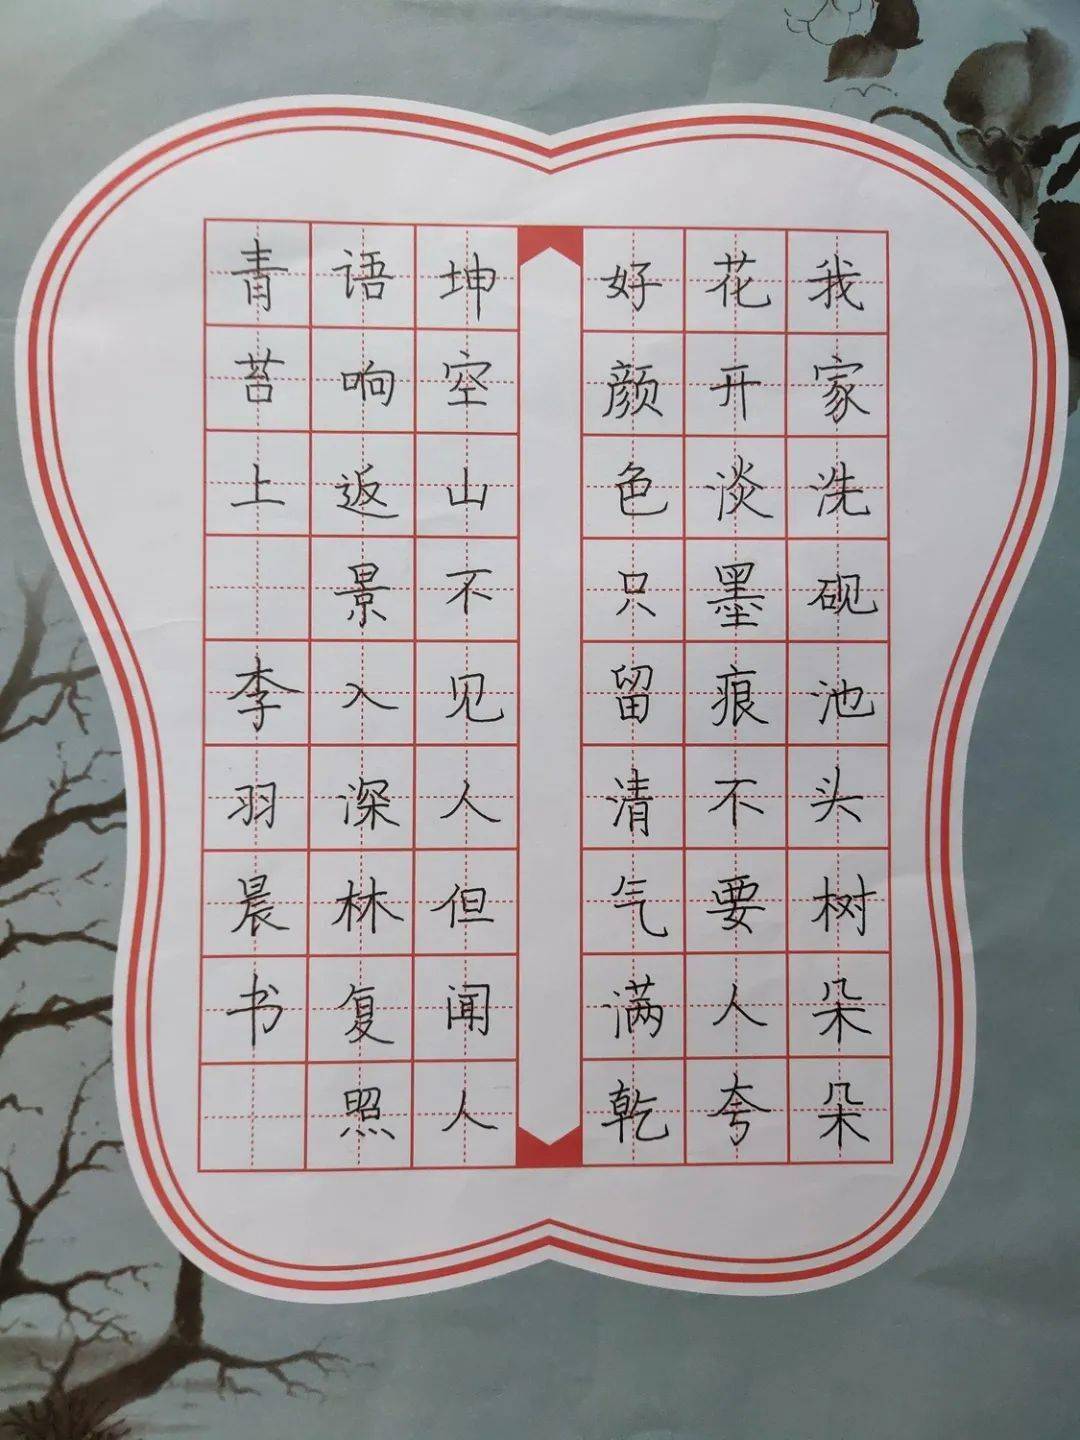 我家洗砚池头树朵朵
花开淡墨痕不要人夸
好颜色只留清气满乾
坤空山不见人但闻人
语响返景入深林复照
青苔上 李羽晨书